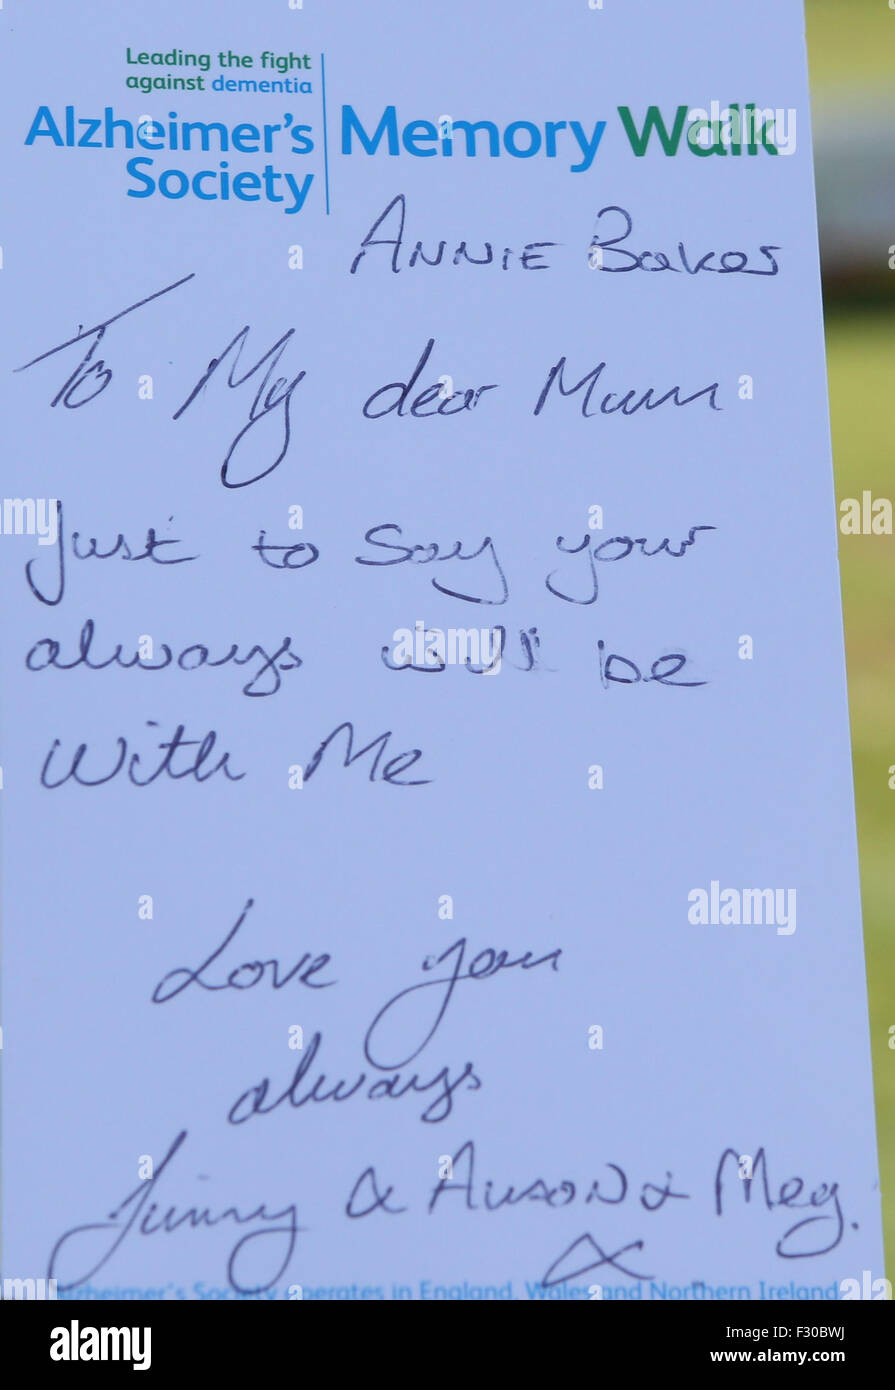 Leading the fight
against dementia
Alzheimer's
Society
Memory Walk
ANNIE Baker
To My dear Mum
Just to Say your
always will be
With Me
Love you
always
Jimmy & ALISON & Meg.
X
Alzheimer's Society operates in England, Wales and Northern Ireland
alamy
alamy
Image ID: F30BWJ
www.alamy.com